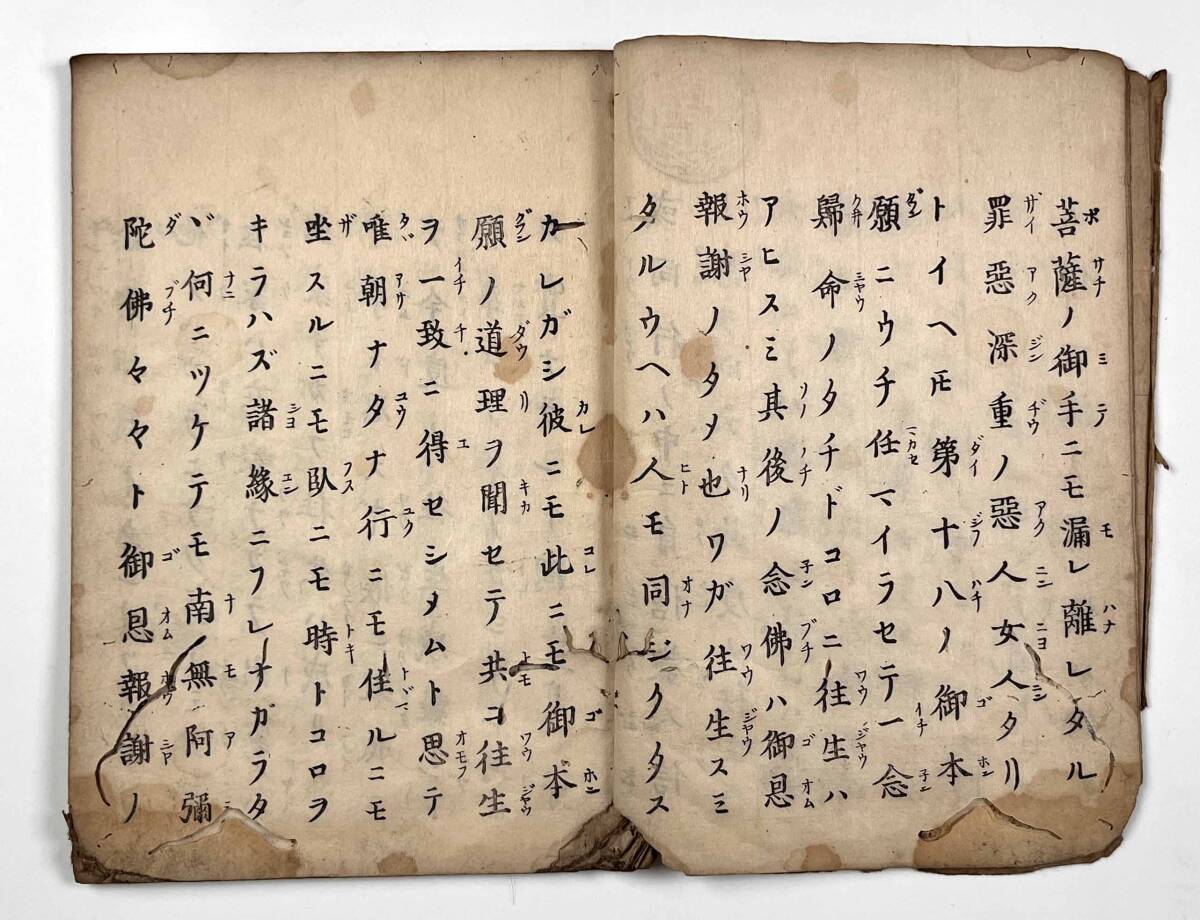 菩薩ノ御手ニモ漏レ離レタル
罪惡深重ノ惡人女人タリ
トイヘ𪜈第十八ノ御本
願ニウチ任マイラセテ一念
歸命ノタチドコロニ往生ハ
アヒスミ其後ノ念佛ハ御恩
報謝ノタメ也ワガ往生スミ
タルウヘハ人モ同ジクタス
カレガシ彼ニモ此ニモ御本
願ノ道理ヲ聞セテ共ニ往生
ヲ一致ニ得セシメムト思テ
唯朝ナタナ行ニモ住ルニモ
坐スルニモ臥ニモ時トコロヲ
キラハズ諸緣ニフレナガラタ
ヾ何ニツケテモ南無阿彌
陀佛々々々々ト御恩報謝ノ